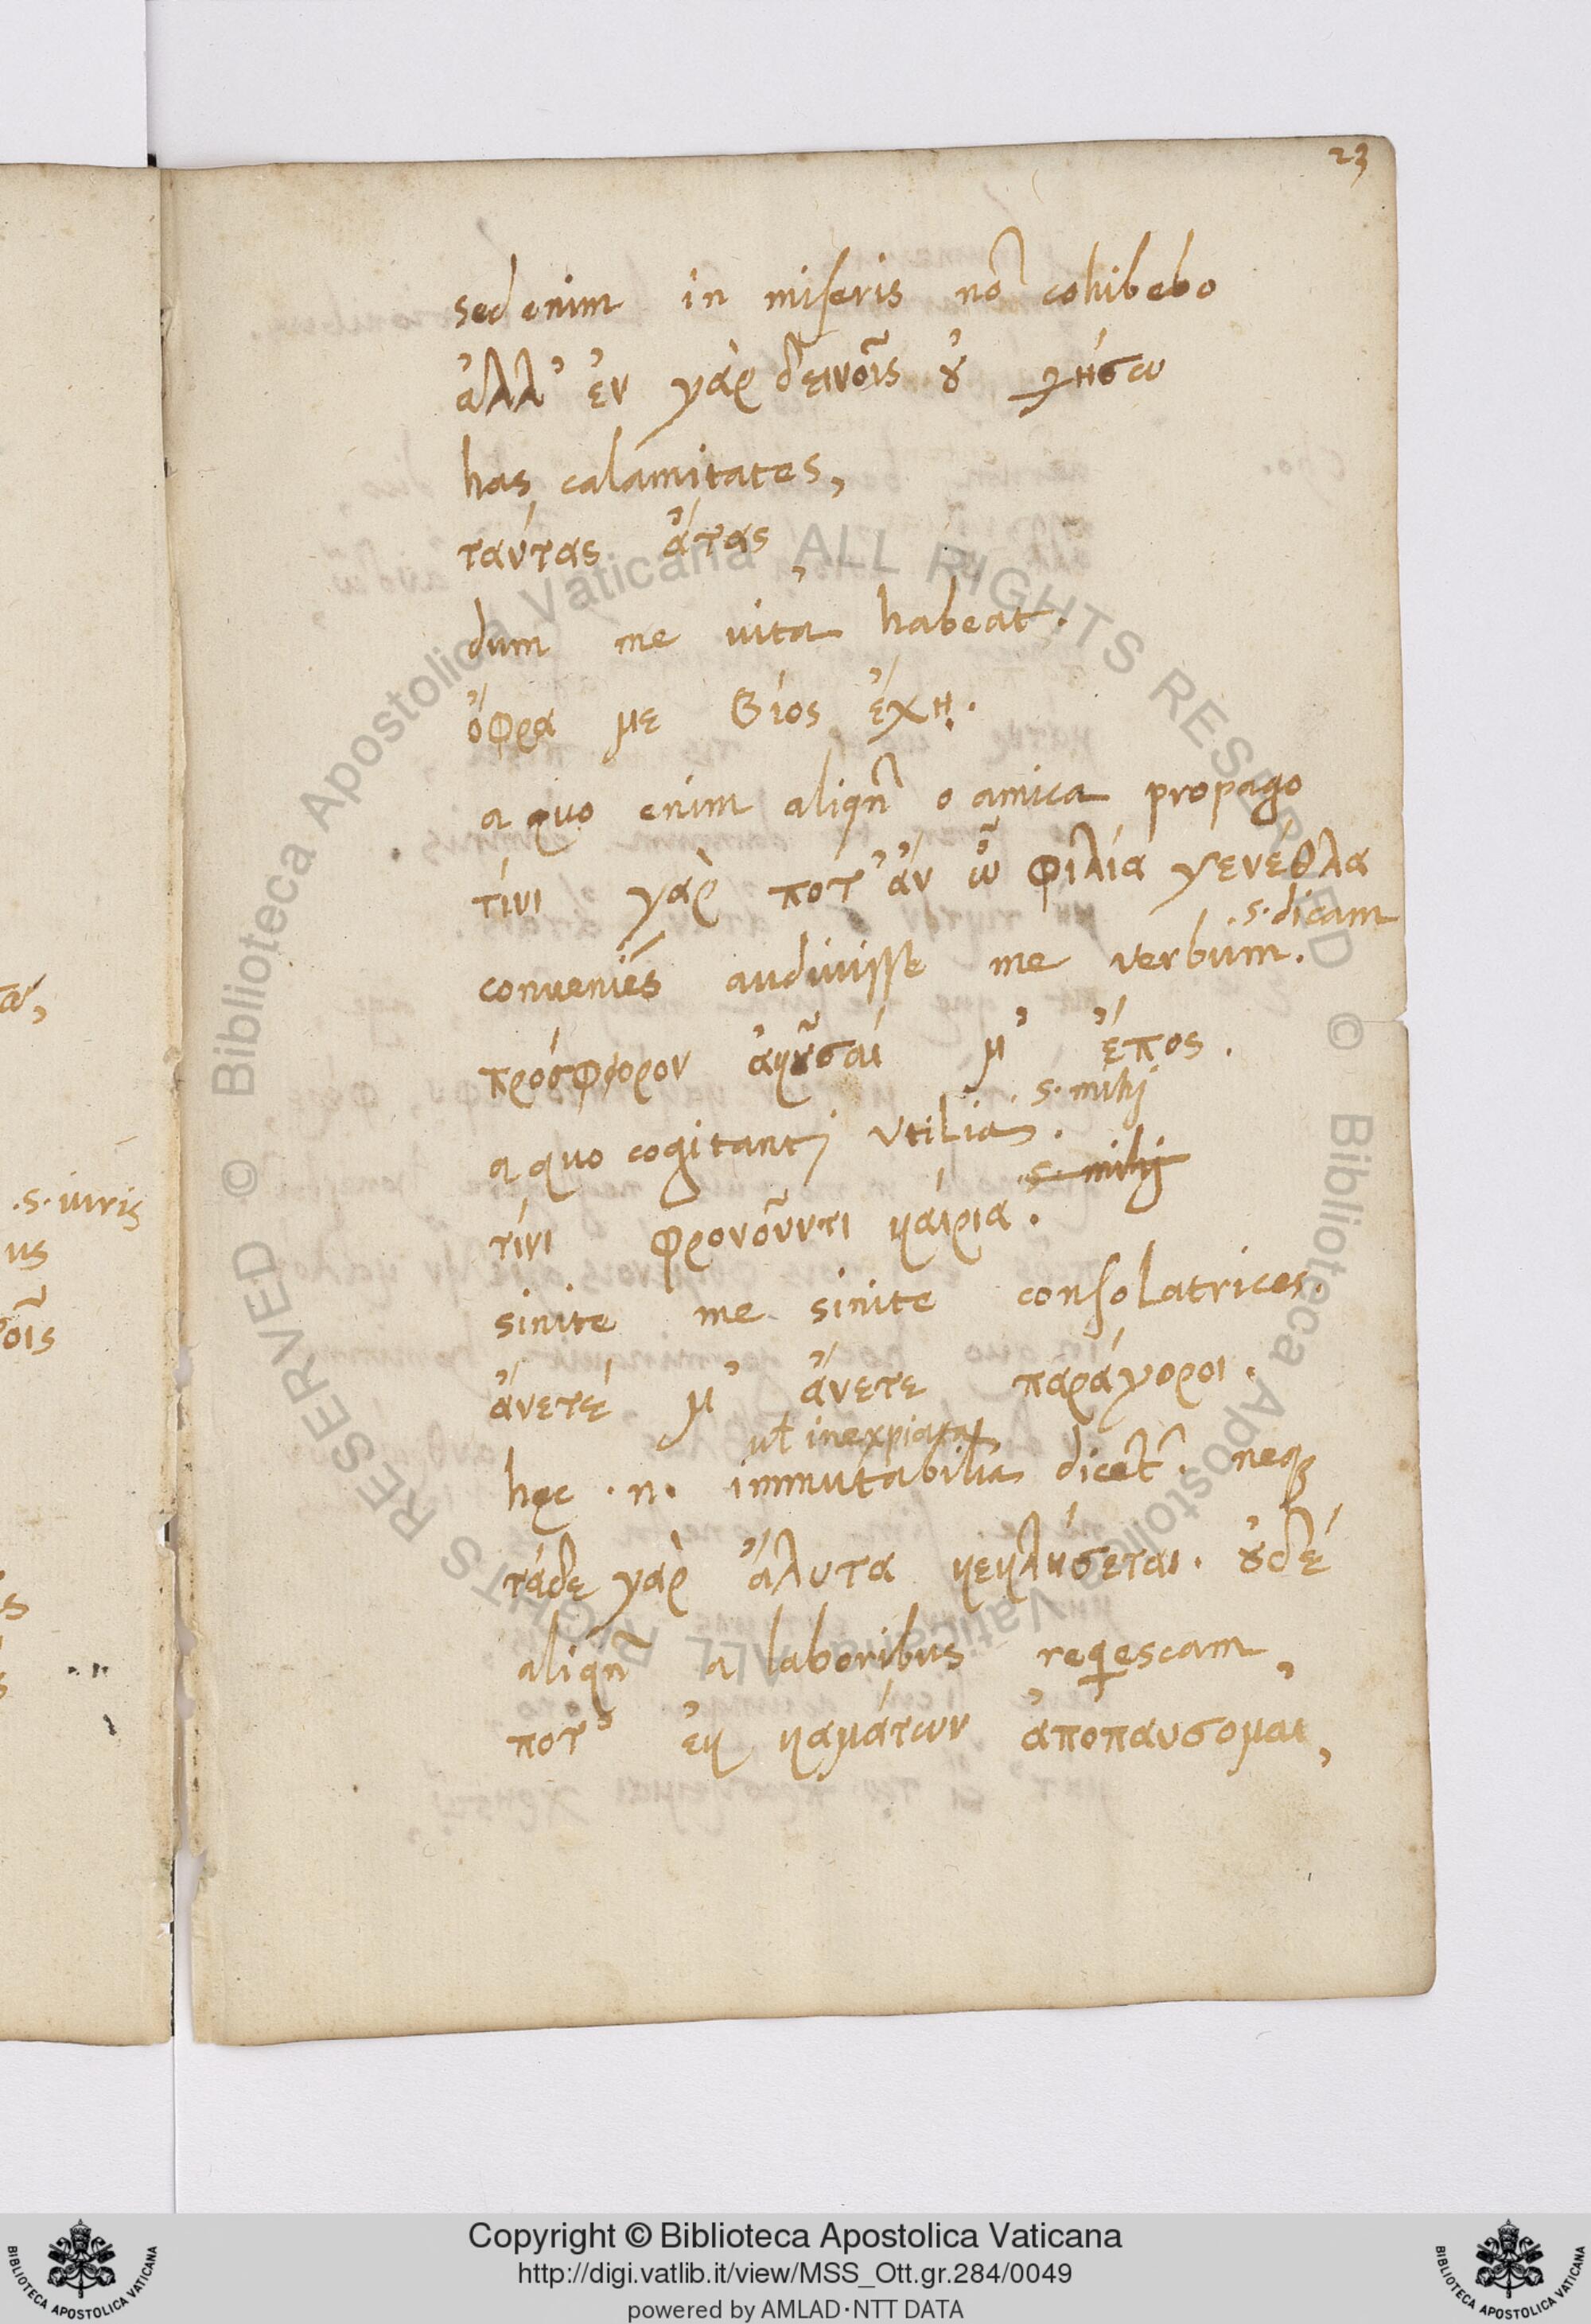 23
sed enim in miseris nõ cohibebo
ἀλλ' ἐν γὰρ δεινοῖς ȣ̓ σχήσω
has calamitates,
ταύτας ἄτας,
dum me uita habeat.
ὄφρα με βίος ἔχῃ.
a quo enim aliqñ o amica propago
τίνι γὰρ ποτ' ἂν ὦ φιλία γενέθλα
.s. dicam
conueniẽs audiuisse me verbum.
πρόσφορον ἀκȣ͂σαί μ' ἔπος.
.s. mihj
a quo cogitantj vtilia.
s. mihj
τίνι φρονοῦντι καίρια.
sinite me sinite consolatrices.
ἄνετέ μ' ἄνετε παράγοροι.
ul inexpiata
hęc .n. immutabilia dicet~. neq;
τάδε γὰρ ἄλυτα κεκλήσεται. ȣ̓δέ
aliqñ a laboribus reqescam,
ποτ' ἐκ καμάτων ἀποπαυσομαι,
.s. iuris
us
οῖς
Copyright © Biblioteca Apostolica Vaticana
http://digi.vatlib.it/view/MSS_Ott.gr.284/0049
powered by AMLAD·NTT DATA
BIBLIOTECA APOSTOLICA VATICANA
BIBLIOTECA APOSTOLICA VATICANA
© Biblioteca Apostolica Vaticana ALL RIGHTS RESERVED
© Biblioteca Apostolica Vaticana ALL RIGHTS RESERVED